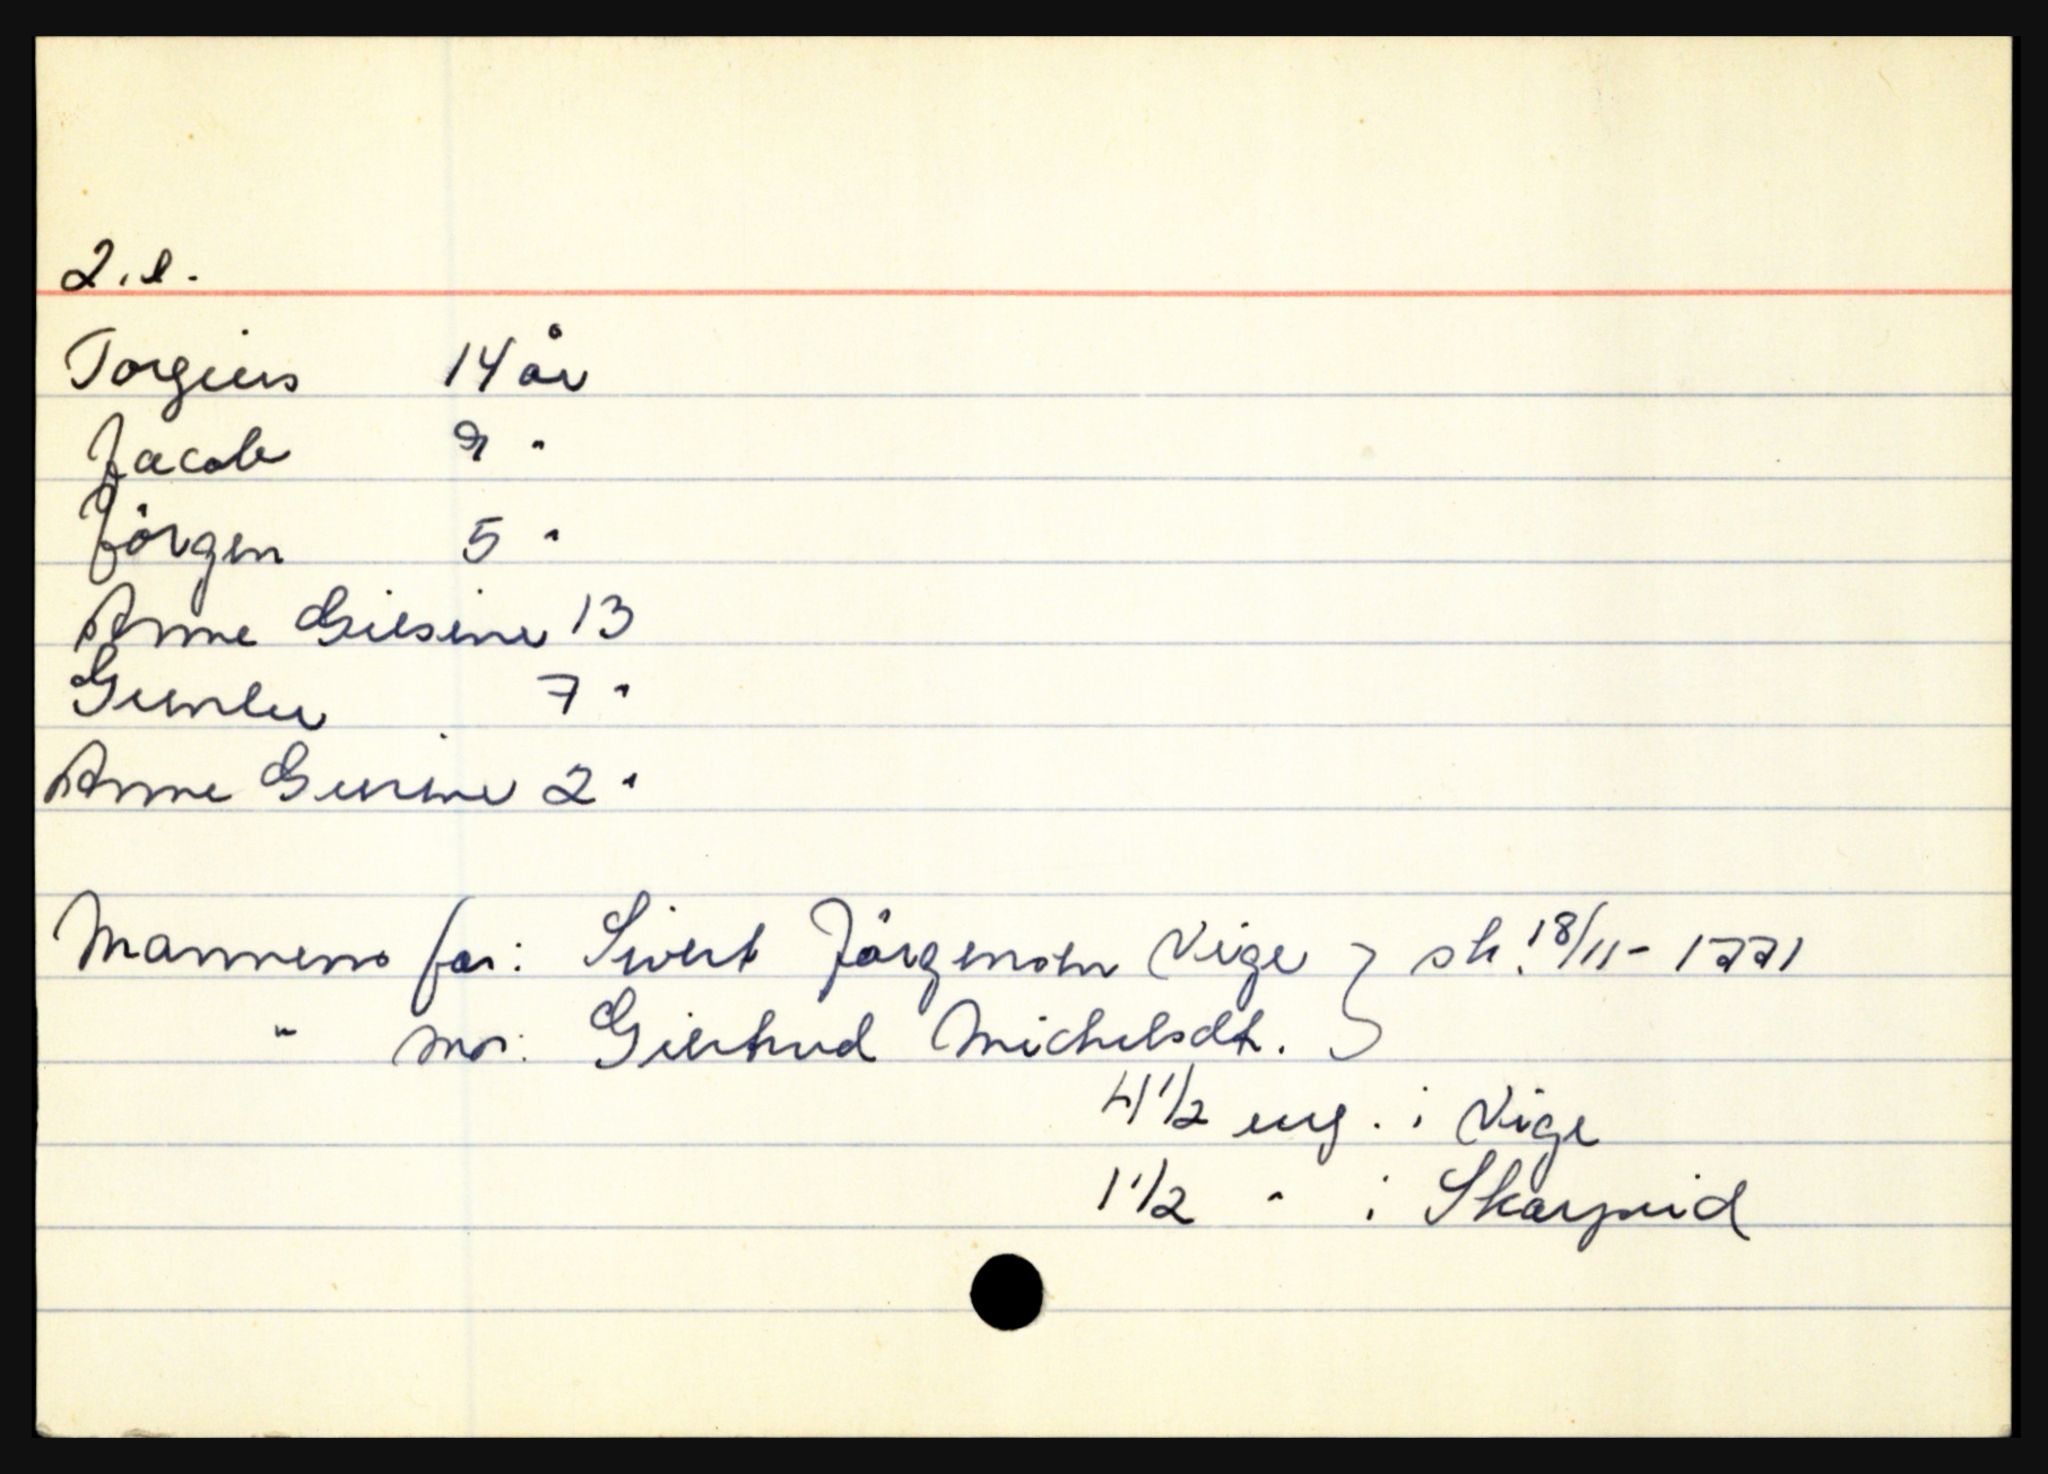 2.e.
Torgius 14 år
Jacob 9 "
Jörgen 5 "
Anne Gilsine 13
Gunler 7 "
Anne Gurine 2 "
Mannens far: Sivert Jörgensen Vige } sk. 18/11-1771
" mor: Giertrud Michelsdt.
4 1/2 eng. i Vige
1 1/2 " i Skarpeid